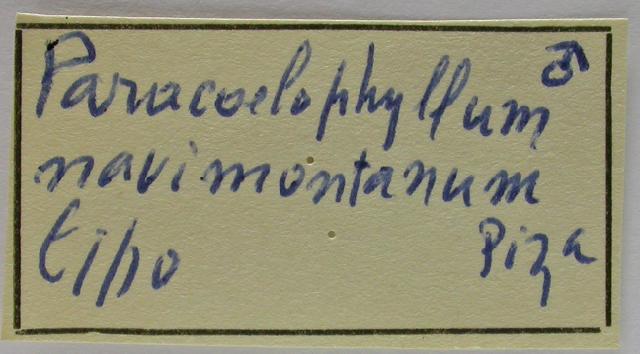 Paracoelophyllum ♂
navimontanum
tipo Piza